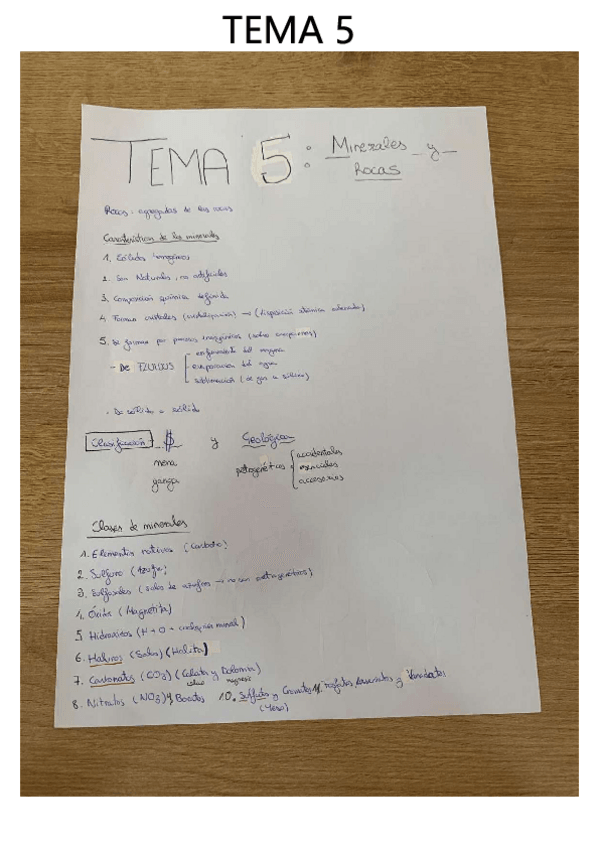 TEMA 5
TEMA 5: Minerales y
Rocas
Rocas: agregados de las rocas
Características de los minerales
1. Sólidos homogéneos
2. Son Naturales, no artificiales
3. Composición química definida
4. Forman cristales (cristalografía) → (disposición atómica adecuada)
5. Se forman por procesos inorgánicos (salvo excepciones)
- DE FLUIDOS
enfriamiento del magma
evaporación del agua
sublimación (de gas a sólido)
· De sólido a sólido
Clasificación → $ y Geológicas
mena
ganga
petrogenéticos
accidentales
esenciales
accesorios
Clases de minerales
1. Elementos nativos (Carbono)
2. Sulfuro (Azufre)
3. Sulfosales (sales de azufres → no son petrogenéticos)
4. Óxido (Magnetita)
5. Hidróxidos (H + O + cualquier mineral)
6. Haluros (Sales) (Halita)
7. Carbonatos (CO3) (Calcita y Dolomita)
calcio magnesio
8. Nitratos (NO3) 9. Boratos 10. Sulfatos y Cromatos 11. Fosfatos, Arseniatos y Vanadatos
(Yeso)